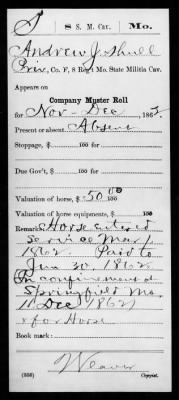 S | 8 S. M. Cav. | Mo.
Andrew J. Shull
Priv., Co. F, 8 Reg't Mo. State Militia Cav.
Appears on
Company Muster Roll
for Nov & Dec, 1862.
Present or absent Absent
Stoppage, $ 100 for
Due Gov't, $ 100 for
Valuation of horse, $ 50 00/100
Valuation of horse equipments, $ 100
Remarks: Horse entered
service Mar
1862 Paid to
Jun 30, 1862
In confinement at
Springfield Mo.
11 Dec 1862
& for Horse
Book mark:
Weaver
(356) Copyist.